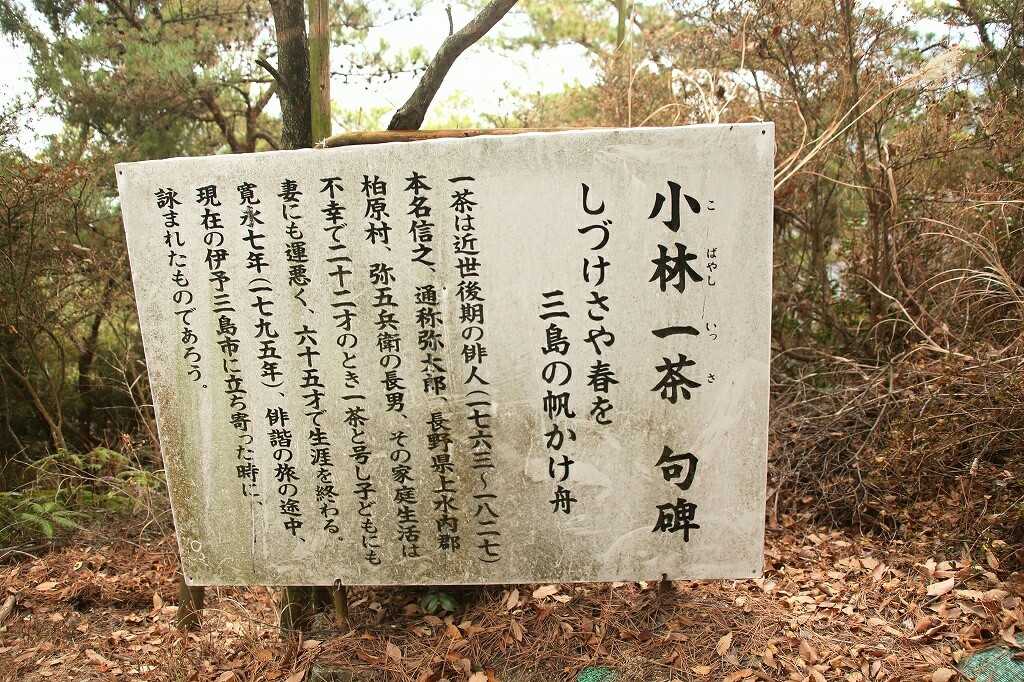 小林一茶 句碑
こばやしいっさ
しづけさや春を
三島の帆かけ舟
一茶は近世後期の俳人(一七六三〜一八二七)
本名信之、通称弥太郎、長野県上水内郡
柏原村、弥五兵衛の長男、その家庭生活は
不幸で二十二才のとき一茶と号し子どもにも
妻にも運悪く、六十五才で生涯を終わる。
寛永七年(一七九五年)、俳諧の旅の途中、
現在の伊予三島市に立ち寄った時に、
詠まれたものであろう。